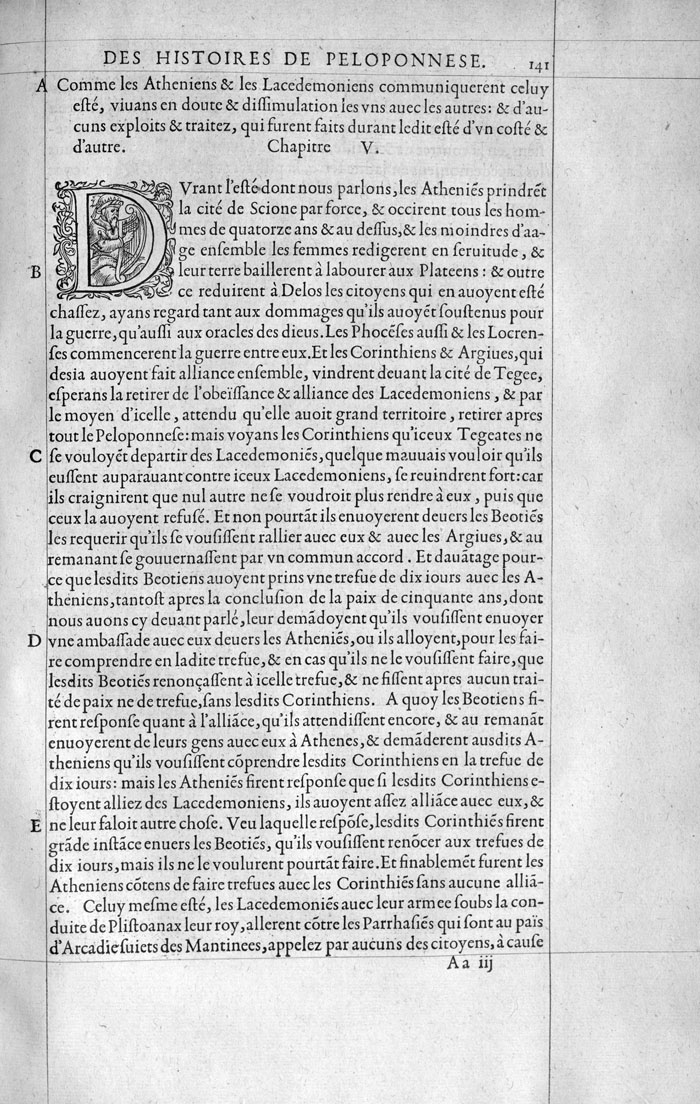 DES HISTOIRES DE PELOPONNESE. 141
A Comme les Atheniens & les Lacedemoniens communiquerent celuy
esté, viuans en doute & dissimulation les vns auec les autres: & d'au-
cuns exploits & traitez, qui furent faits durant ledit esté d'vn costé &
d'autre. Chapitre V.
DVrant l'esté dont nous parlons, les Atheniẽs prindrẽt
la cité de Scione par force, & occirent tous les hom-
mes de quatorze ans & au dessus, & les moindres d'aa-
ge ensemble les femmes redigerent en seruitude, &
B leur terre baillerent à labourer aux Plateens : & outre
ce reduirent à Delos les citoyens qui en auoyent esté
chassez, ayans regard tant aux dommages qu'ils auoyẽt soustenus pour
la guerre, qu'aussi aux oracles des dieus. Les Phocẽses aussi & les Locren-
ses commencerent la guerre entre eux. Et les Corinthiens & Argiues, qui
desia auoyent fait alliance ensemble, vindrent deuant la cité de Tegee,
esperans la retirer de l'obeïssance & alliance des Lacedemoniens, & par
le moyen d'icelle, attendu qu'elle auoit grand territoire, retirer apres
tout le Peloponnese: mais voyans les Corinthiens qu'iceux Tegeates ne
C se vouloyẽt departir des Lacedemoniẽs, quelque mauuais vouloir qu'ils
eussent auparauant contre iceux Lacedemoniens, se reuindrent fort: car
ils craignirent que nul autre ne se voudroit plus rendre à eux, puis que
ceux la auoyent refusé. Et non pourtãt ils enuoyerent deuers les Beotiẽs
les requerir qu'ils se vousissent rallier auec eux & auec les Argiues, & au
remanant se gouuernassent par vn commun accord. Et dauãtage pour-
ce que lesdits Beotiens auoyent prins vne trefue de dix iours auec les A-
theniens, tantost apres la conclusion de la paix de cinquante ans, dont
nous auons cy deuant parlé, leur demãdoyent qu'ils vousissent enuoyer
D vne ambassade auec eux deuers les Atheniẽs, ou ils alloyent, pour les fai-
re comprendre en ladite trefue, & en cas qu'ils ne le vousissent faire, que
lesdits Beotiẽs renonçassent à icelle trefue, & ne fissent apres aucun trai-
té de paix ne de trefue, sans lesdits Corinthiens. A quoy les Beotiens fi-
rent response quant à l'alliãce, qu'ils attendissent encore, & au remanãt
enuoyerent de leurs gens auec eux à Athenes, & demãderent ausdits A-
theniens qu'ils vousissent cõprendre lesdits Corinthiens en la trefue de
dix iours: mais les Atheniẽs firent response que si lesdits Corinthiens e-
stoyent alliez des Lacedemoniens, ils auoyent assez alliãce auec eux, &
E ne leur faloit autre chose. Veu laquelle respõse, lesdits Corinthiẽs firent
grãde instãce enuers les Beotiẽs, qu'ils vousissent renõcer aux trefues de
dix iours, mais ils ne le voulurent pourtãt faire. Et finablemẽt furent les
Atheniens cõtens de faire trefues auec les Corinthiẽs sans aucune alliã-
ce. Celuy mesme esté, les Lacedemoniẽs auec leur armee soubs la con-
duite de Plistoanax leur roy, allerent cõtre les Parrhasiẽs qui sont au païs
d'Arcadie suiets des Mantinees, appelez par aucuns des citoyens, à cause
Aa iij